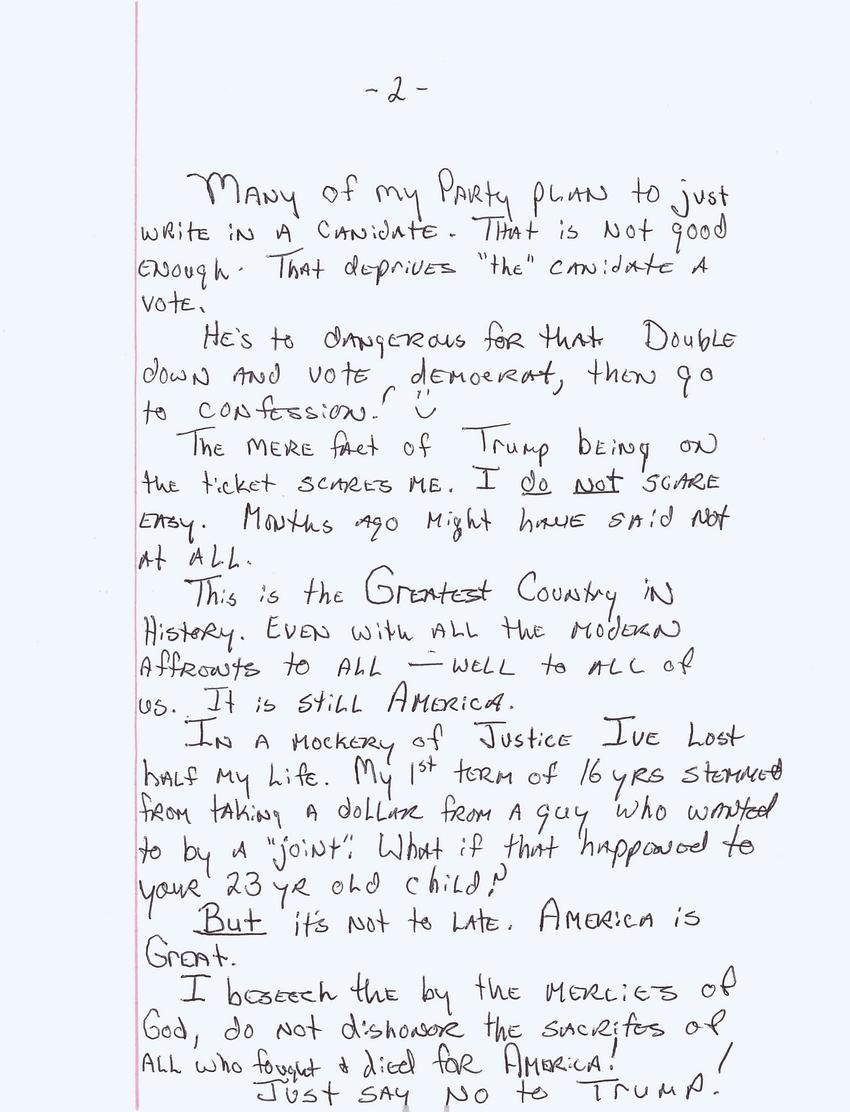 - 2 -
Many of my Party plan to just
write in a canidate. That is not good
enough. That deprives "the" canidate a
vote.
He's to dangerous for that Double
down and vote democrat, then go
to confession!
The mere fact of Trump being on
the ticket scares me. I do not scare
easy. Months ago might have said not
at all.
This is the Greatest Country in
History. Even with all the modern
affronts to all — well to all of
us. It is still America.
In a mockery of Justice Ive Lost
half my life. My 1st term of 16 yrs stemmed
from taking a dollar from a guy who wanted
to by a "joint". What if that happened to
your 23 yr old child?
But it's not to late. America is
Great.
I beseech the by the mercies of
God, do not dishonor the sacrifes of
all who fought & died for America!
Just say No to Trump!